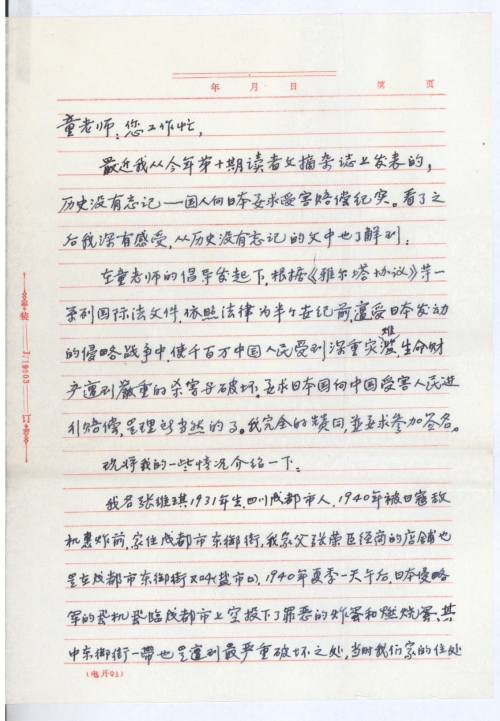 年 月 日 第 页
童老师：您工作忙，
最近我从今年第十期读者文摘杂志上发表的，
历史没有忘记——国人向日本要求受害赔偿纪实。看了之
后我深有感受，从历史没有忘记的文中也了解到：
在童老师的倡导发起下，根据《雅尔塔协议》等一
系列国际法文件，依照法律为半个世纪前遭受日本发动
的侵略战争中，使千百万中国人民受到深重灾难，生命财
产遭到严重的杀害与破坏。要求日本国向中国受害人民进
行赔偿，是理所当然的了。我完全的赞同，並要求参加签名。
现将我的一些情况介绍一下：
我名张维琪1931年生，四川成都市人，1940年被日寇敌
机轰炸前，家住成都市东御街，我家父张荣臣经商的店铺也
是在成都市东御街 (盐市口)，1940年夏季一天午后，日本侵略
军的飞机飞临成都市上空投下了罪恶的炸蛋和燃烧蛋，其
中东御街一帶也是遭到最严重破坏之处，当时我们家的住处
(电开01)
装 订